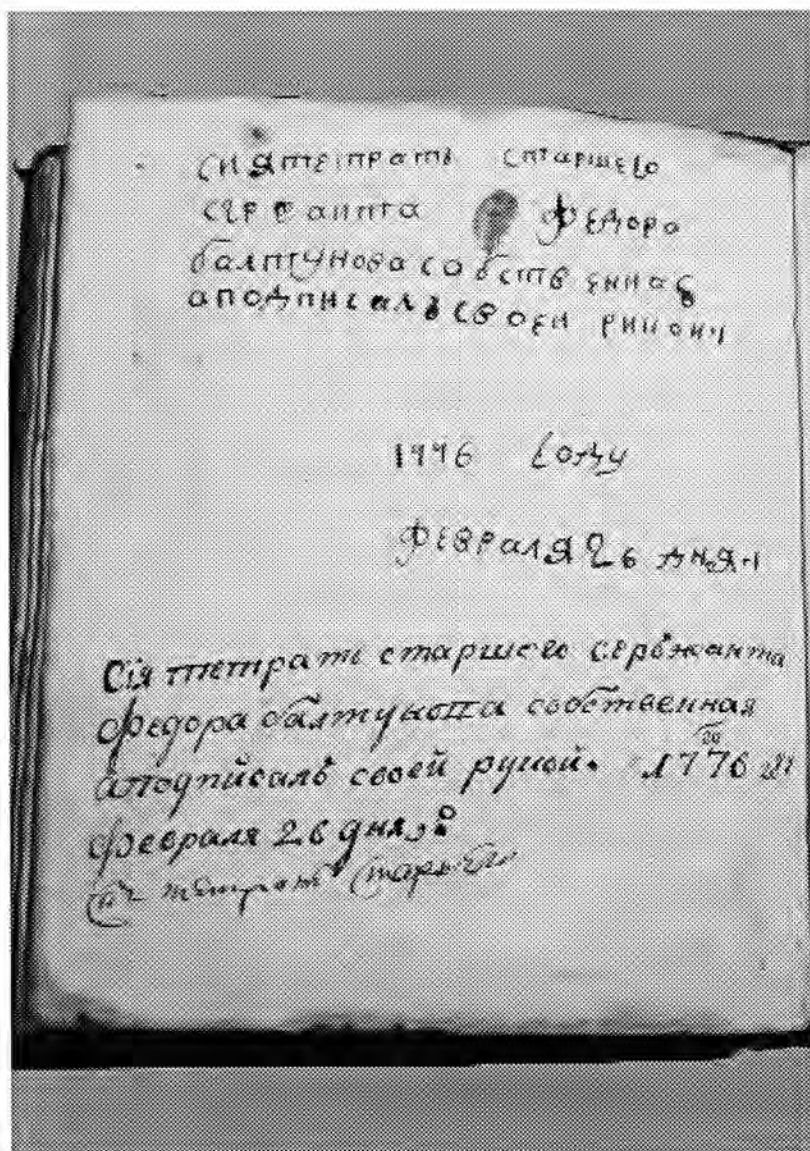 сия тетрать старшего
сержанта федора
балтунова собственная
а подписалъ своеи рукои
1776 году
февраля 26 дня
Сія тетрать старшего сержанта
федора балтунова собственная
а подписалъ своей рукой. 1776 году
февраля 26 дня
Сия тетрать старшего